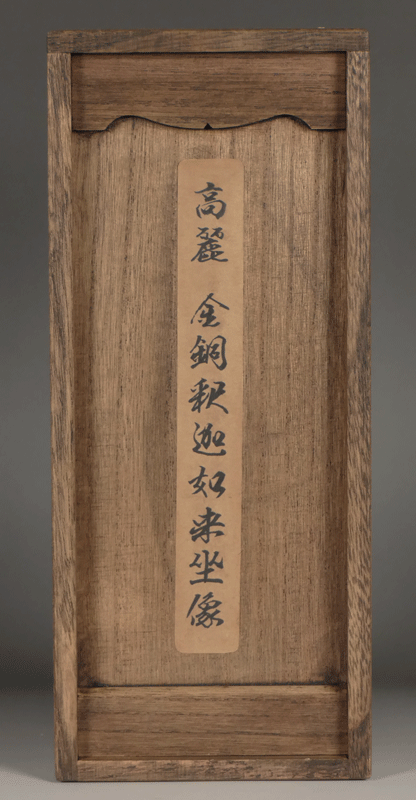 高麗 金銅釈迦如来坐像